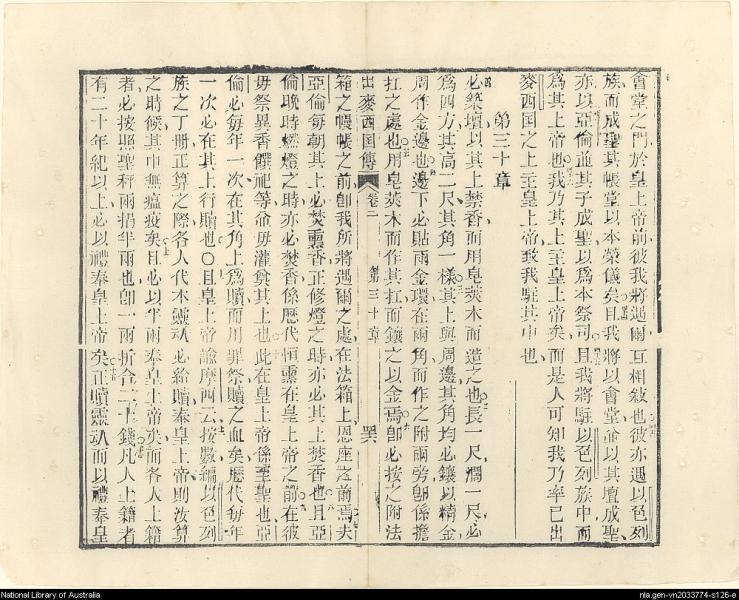 會堂之門於皇上帝前彼我將遇爾互相敘也彼亦遇以色列
族而成聖其帳堂以本榮儀矣且我將以會堂並以其壇成聖
亦以亞倫並其子成聖以爲本祭司且我將駐以色列族中而
爲其上帝也我乃其上主皇上帝矣而是人可知我乃率已出
麥西国之上主皇上帝致我駐其中也
第三十章
必築壇以其上焚香而用皂莢木而造之也長一尺濶一尺必
爲四方其高二尺其角一樣其上與周邊其角均必鑲以精金
周作金邊也邊下必貼兩金環在兩角而作之附兩旁卽係擔
扛之處也用皂莢木而作其扛而鑲之以金焉卽必按之附法
出麥西国傳 卷二 第三十章
箱之帳帳之前卽我所將遇爾之處在法箱上恩座之前焉夫
亞倫每朝其上必焚熏香正修燈之時亦必其上焚香也且亞
倫晚時燃燈之時亦必焚香係歷代恒熏在皇上帝之前在彼
毋祭異香饌祀等侖毋灌奠其上也此在皇上帝係至聖也亞
倫必每年一次在其角上爲贖而用罪祭贖之血矣歷代每年
一次必在其上行贖也〇且皇上帝諭摩西云按數編以色列
族之丁册正算之際各人代本靈必給贖奉皇上帝則汝算
之時候其中無瘟疫矣且必以半兩奉皇上帝矣而各人上籍
者必按照聖秤兩捐半兩也卽一兩折合二十錢凡人上籍者
有二十年紀以上必以禮奉皇上帝矣正贖靈而以禮奉皇